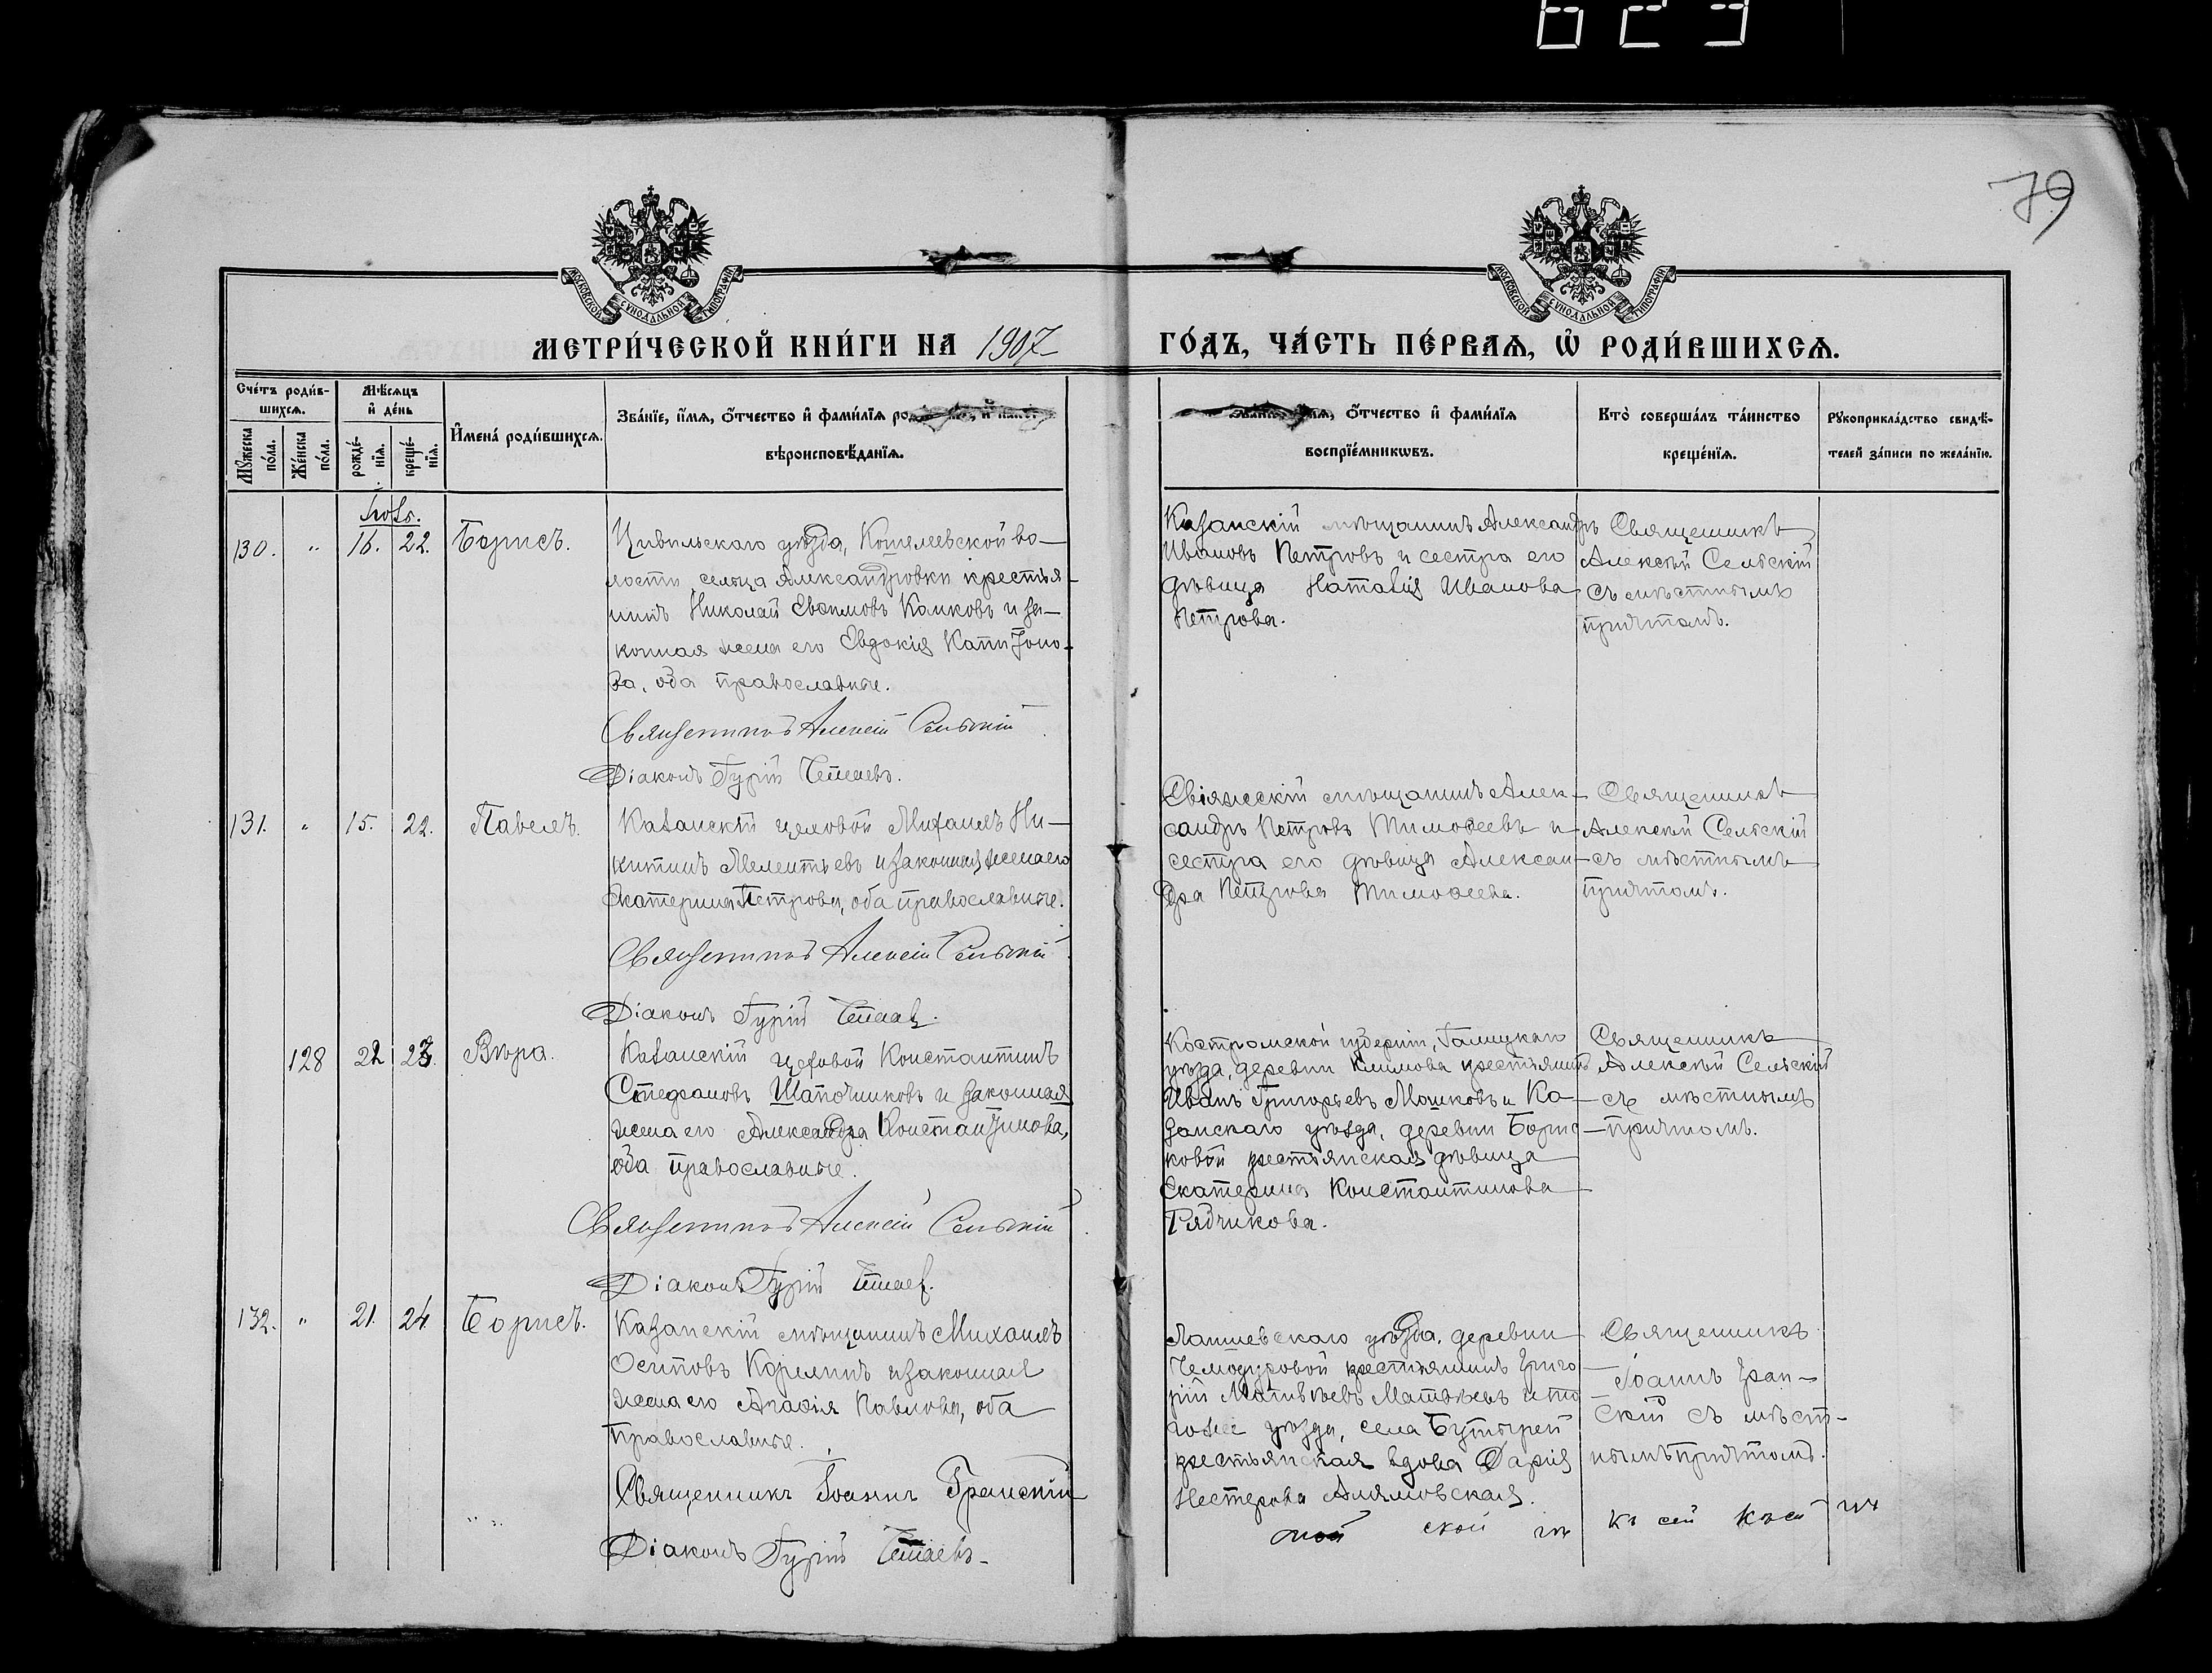 629
79
МОСКОВСКОЙ СѴНОДАЛЬНОЙ ТИПОГРАФІИ
МОСКОВСКОЙ СѴНОДАЛЬНОЙ ТИПОГРАФІИ
МЕТРИ́ЧЕСКОЙ КНИ́ГИ НА 1907
ГО́ДЪ, ЧА́СТЬ ПЕ́РВАЯ, Ѡ РОДИ́ВШИХСЯ.
Сче́тъ роди́в-
шихся.
Мѣ́сяцъ
и҆ де́нь
Му́жеска по́ла.
Же́нска по́ла.
рожде́-нїя.
креще́-нїя.
И҆мена̀ роди́вшихся.
Зва́нїе, и҆́мя, ѻ҆́тчество и҆ фами́лїя
вѣроисповѣ́данїя.
ѻ҆́тчество и҆ фами́лїя
воспрїе́мникѡвъ.
Кто̀ соверша́лъ та́инство
креще́нїя.
Рꙋкоприкла́дство свидѣ́-
телей за́писи по жела́нїю.
130. " 16. 22. Борисъ.
Цивильскаго уѣзда, Кошелеевской во-
лости, сельца Александровки крестья-
нинъ Николай Евѳимовъ Каиковъ и за-
конная жена его Евдокія Капитоно-
ва, оба православные.
Священникъ Алексій Сельскій
Діаконъ Гурій
Казанскій мѣщанинъ Александръ
Ивановъ Петровъ и сестра его
дѣвица Наталія Иванова
Петрова.
Священникъ
Алексѣй Сельскій
съ мѣстнымъ
причтомъ.
131. " 15. 22. Павелъ.
Казанскій цеховой Михаилъ Ни-
китинъ Мелентьевъ и законная жена его
Екатерина Петрова, оба православные.
Священникъ Алексій Сельскій
Діаконъ Гурій
Свіяжскій мѣщанинъ Алек-
сандръ Петровъ Тимоѳеевъ и
сестра его дѣвица Алексан-
дра Петрова Тимоѳеева.
Священникъ
Алексѣй Сельскій
съ мѣстнымъ
причтомъ.
128 22 23. Вѣра.
Казанскій цеховой Константинъ
Стефановъ Шапочниковъ и законная
жена его Александра Константинова,
оба православные.
Священникъ Алексій Сельскій
Діаконъ Гурій
Костромской губерніи, Галицкаго
уѣзда, деревни Климова крестьянинъ
Иванъ Григорьевъ Мошковъ и Ка-
занскаго уѣзда, деревни Борис-
ковой крестьянская дѣвица
Екатерина Константинова
Рядчикова.
Священникъ
Алексѣй Сельскій
съ мѣстнымъ
причтомъ.
132. " 21. 24 Борисъ.
Казанскій мѣщанинъ Михаилъ
Осиповъ Корелинъ и законная
жена его Агаѳія Павлова, оба
православные.
Священникъ Іоаннъ Гранскій
Діаконъ Гурій
Лаишевскаго уѣзда, деревни
Чемодуровой крестьянинъ Григо-
рій Матвѣевъ Матвѣевъ и то-
гоже уѣзда, села Бутырей
крестьянская вдова Дарія
Нестерова
Священникъ
Іоаннъ Гран-
скій съ мѣст-
нымъ причтомъ.
ской къ сей